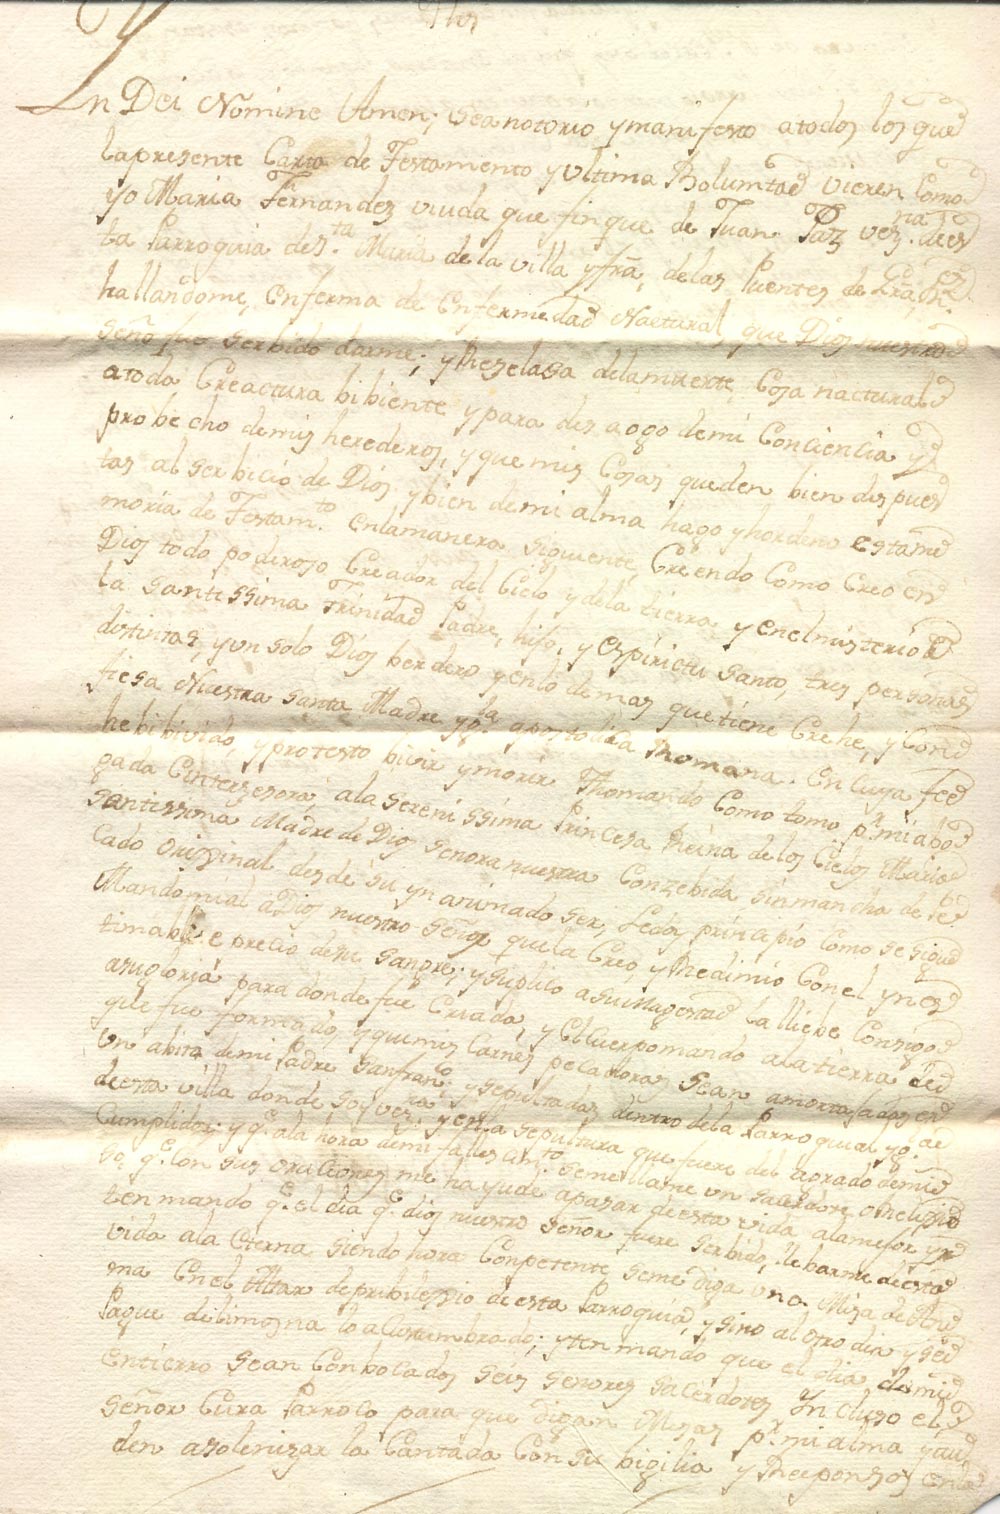 In Dei Nomine Amen; Sea notorio y manifesto a todos los que
la presente Carta de Testamento y ultima Boluntad vieren Como
yo Maria Fernandez viuda que finque de Juan Paz vez.na de es
ta Parroquia de S.ta Maria de la villa y fra, de las Puentes de
hallandome, enferma de enfermedad Nactural, que Dios nuestro
Señor fue Serbido darme; y Rezelosa de la muerte, Cosa nactural
a toda Creactura bibiente, y para desaogo de mi Conciencia y
probecho de mis herederos, y que mis Cosas queden bien dispues
tas al serbicio de Dios y bien de mi alma hago y hordeno esta me
moria de Testam.to en la manera siguiente, Creendo Como Creo en
Dios todo poderoso Creador del Cielo y de la tierra y en el misterio de
la Santissima Trinidad Padre, hijo, y espirictu santo, tres personas
distintas, y un solo Dios berdero y en lo demas que tiene Crehe, y Con
fiesa Nuestra santa Madre yg.la apostolica Romana. en cuya fee
he bibido, y protesto bivir y morir Thomando Como tomo p.r mi abo
gada e interzesora, a la serenissima Princesa Reina de los Cielos Maria
santissima Madre de Dios Señora nuestra Conzebida sin mancha de Pe
cado original desde su ynanimado ser, Ledos principio Como se sigue
Mando mi al a Dios nuestro Señor que la Creo, y Redimio Con el ynes
timable precio de su sangre; y suplico a su Magestad la llebe Consigo
a su gloria para donde fue Criada, y el Cuerpo mando a la tierra de
que fue formado, y que mis Carnes pecadoras Sean amortajadas en
un abito de mi Padre San fran.co y sepultadas dentro de la Parroquial yg.a de
de esta villa donde soy vez.na y en la sepultura que fuere del agrado de mis
Cumplidores y q.e a la hora de mi fallescim.to se me llame un sacerdote, o Relijio
so, q.e Con sus oraciones me hayude a pasar de esta vida a la mejor y
ten mando q.e el dia q.e dios nuestro Señor fuere serbido, llebarme de esta
vida a la eterna siendo hora Conpetente, se me diga una Misa de An
ma en el Altar de pribilejio de esta Parroquia, y sino al otro dia y se
Pague de limosna lo acustumbrado; yten mando que el dia de mi
entierro Sean Conbocados Seis Señores Sacerdotes Incluso el
Señor Cura Parroco para que digan Misas p.r mi alma y ayu
den a solenizar la Cantada Con su bigilia y Responsos en la